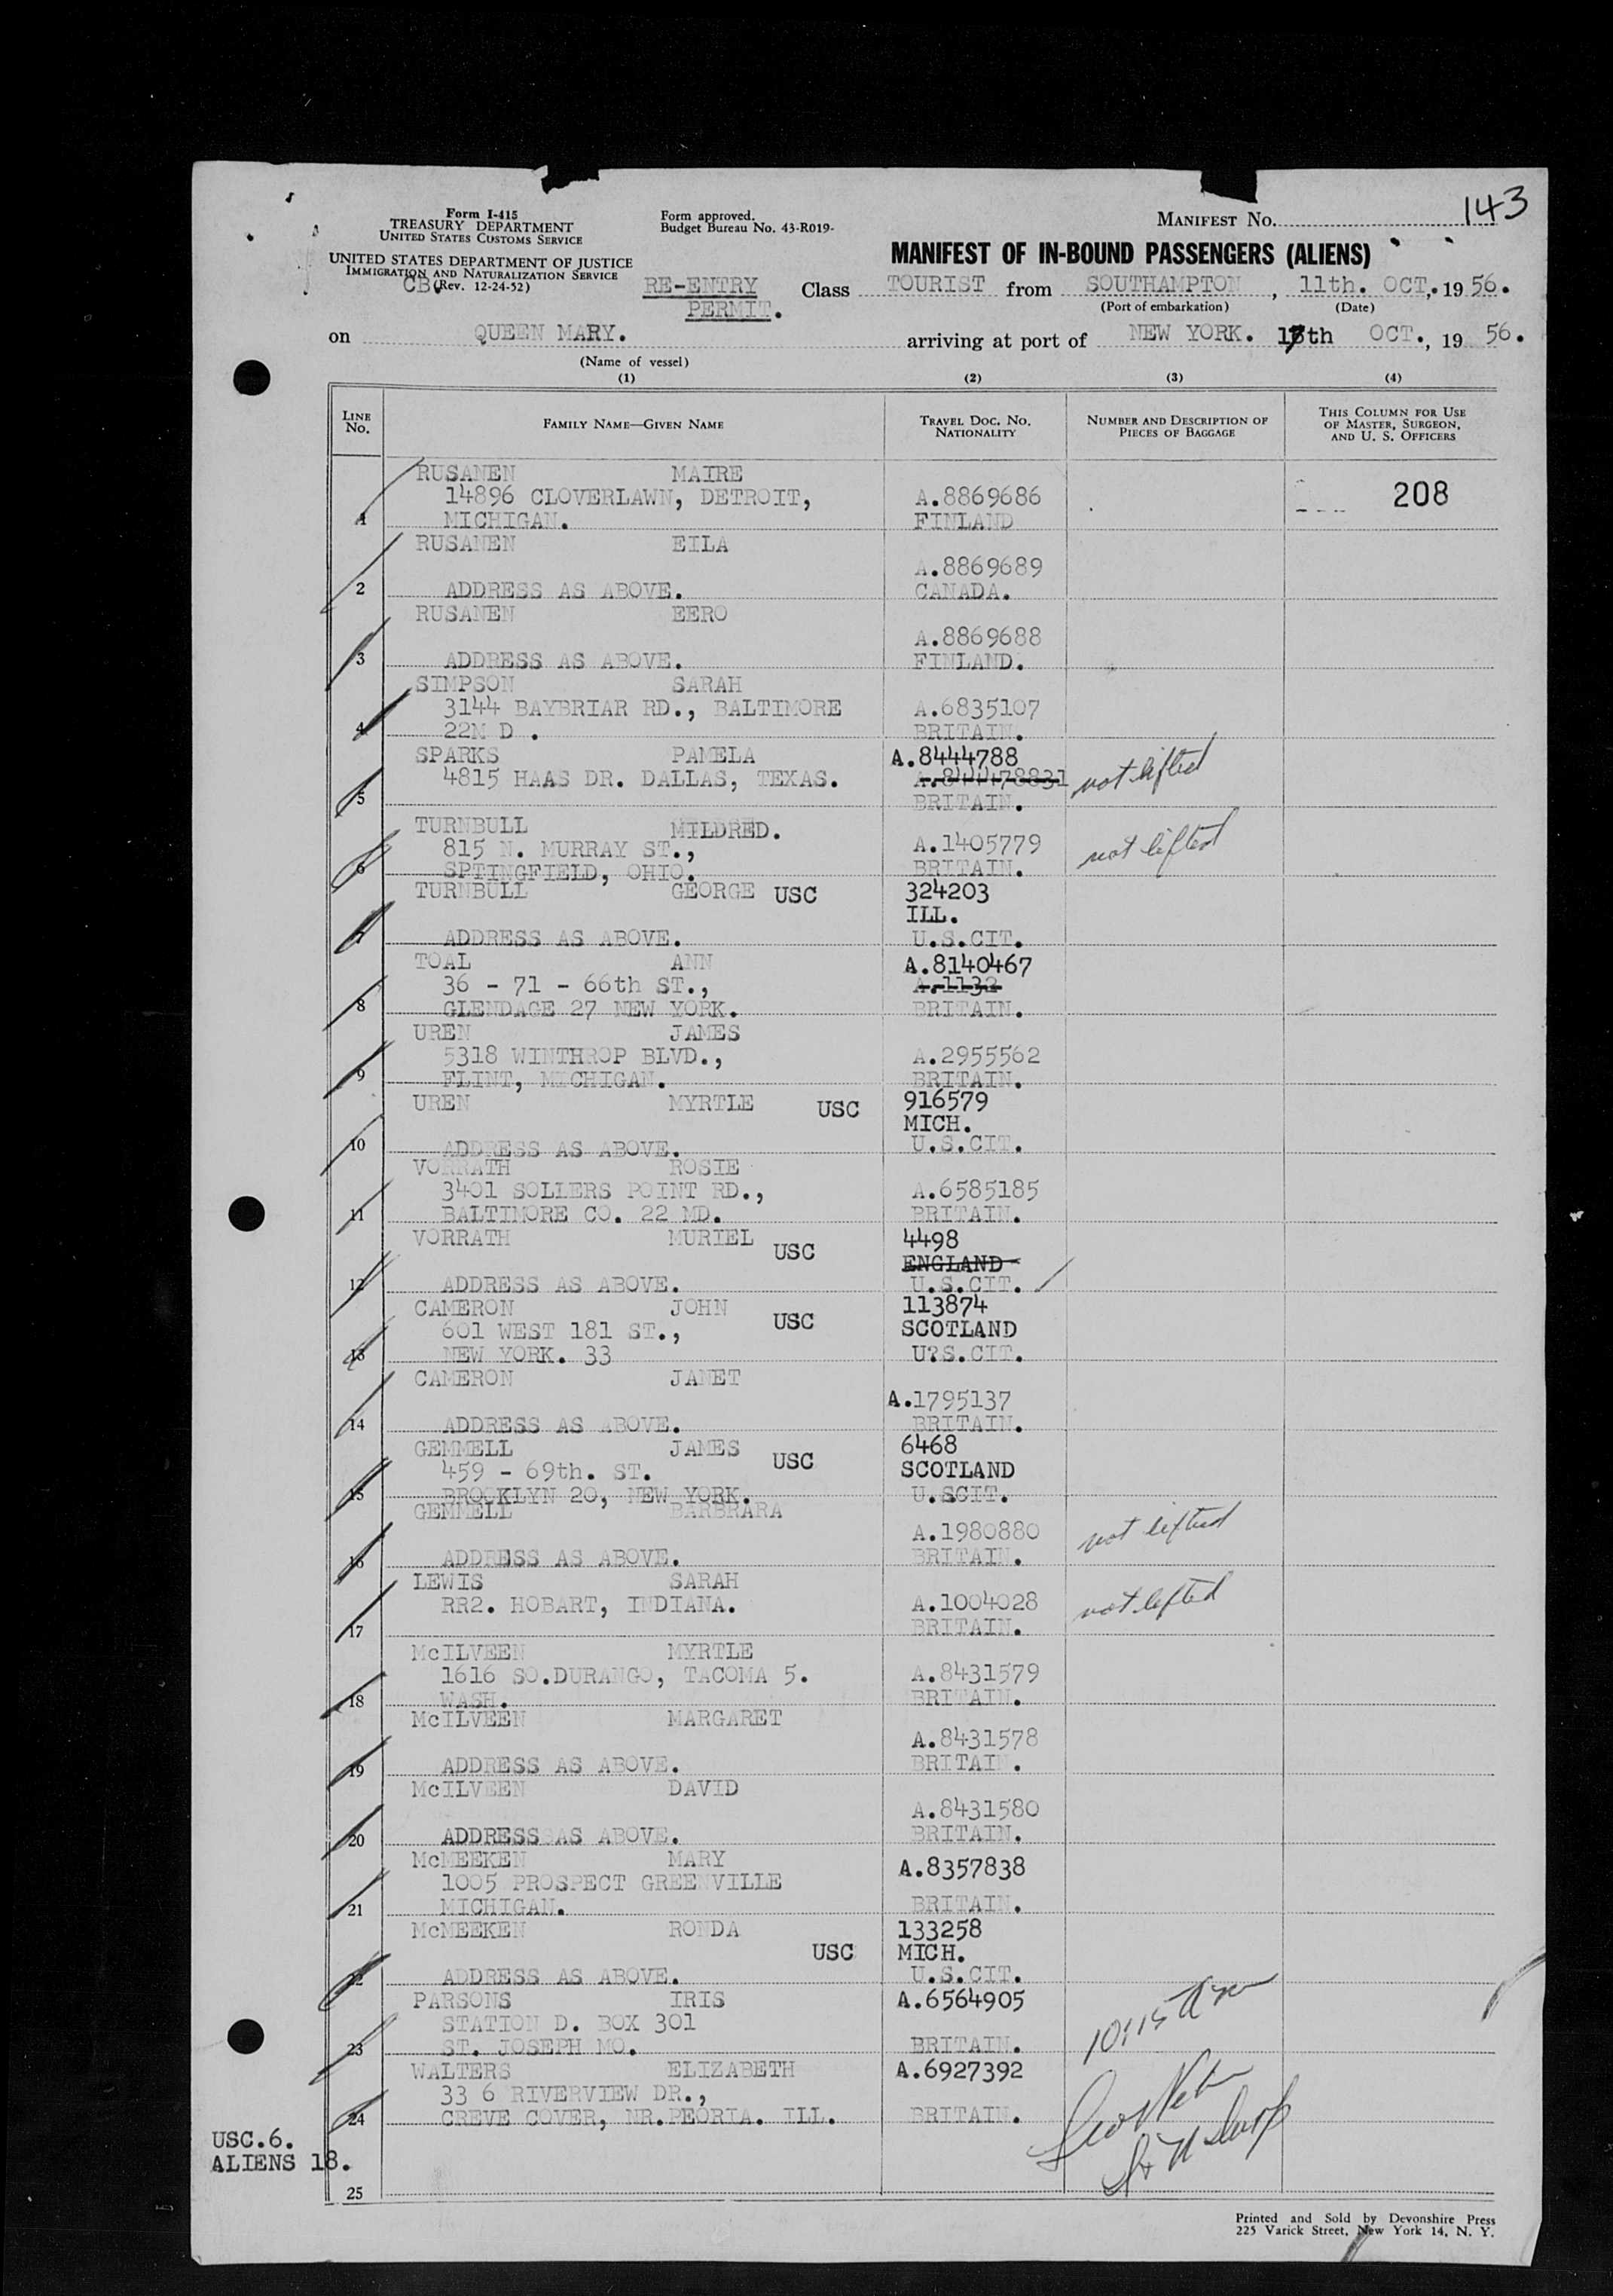 143
Form I-415
TREASURY DEPARTMENT
UNITED STATES CUSTOMS SERVICE
Form approved.
Budget Bureau No. 43-R019-
MANIFEST NO.
UNITED STATES DEPARTMENT OF JUSTICE
IMMIGRATION AND NATURALIZATION SERVICE
CB. (Rev. 12-24-52)
MANIFEST OF IN-BOUND PASSENGERS (ALIENS)
RE-ENTRY
PERMIT.
Class TOURIST from SOUTHAMPTON, 11th. OCT, 1956.
(Port of embarkation) (Date)
on QUEEN MARY. arriving at port of NEW YORK. 17th OCT., 19 56.
(Name of vessel)
(1) (2) (3) (4)
LINE No.
FAMILY NAME—GIVEN NAME
TRAVEL DOC. NO. NATIONALITY
NUMBER AND DESCRIPTION OF PIECES OF BAGGAGE
THIS COLUMN FOR USE OF MASTER, SURGEON, AND U. S. OFFICERS
RUSANEN MAIRE
14896 CLOVERLAWN, DETROIT, A.8869686 208
1 MICHIGAN. FINLAND
RUSANEN EILA
A.8869689
2 ADDRESS AS ABOVE. CANADA.
RUSANEN EERO
A.8869688
3 ADDRESS AS ABOVE. FINLAND.
SIMPSON SARAH
3144 BAYBRIAR RD., BALTIMORE A.6835107
4 22M D . BRITAIN.
SPARKS PAMELA A.8444788
4815 HAAS DR. DALLAS, TEXAS. A.844478831 not lifted
5 BRITAIN.
TURNBULL MILDRED.
815 N. MURRAY ST., A.1405779 not lifted
6 SPTINGFIELD, OHIO. BRITAIN.
TURNBULL GEORGE USC 324203
ILL.
7 ADDRESS AS ABOVE. U.S.CIT.
TOAL ANN A.8140467
36 - 71 - 66th ST., A.1132
8 GLENDAGE 27 NEW YORK. BRITAIN.
UREN JAMES
5318 WINTHROP BLVD., A.2955562
9 FLINT, MICHIGAN. BRITAIN.
UREN MYRTLE USC 916579
MICH.
10 ADDRESS AS ABOVE. U.S.CIT.
VORRATH ROSIE
3401 SOLLERS POINT RD., A.6585185
11 BALTIMORE CO. 22 MD. BRITAIN.
VORRATH MURIEL USC 4498
ENGLAND
12 ADDRESS AS ABOVE. U.S.CIT.
CAMERON JOHN USC 113874
601 WEST 181 ST., SCOTLAND
13 NEW YORK. 33 U?S.CIT.
CAMERON JANET
A.1795137
14 ADDRESS AS ABOVE. BRITAIN.
GEMMELL JAMES USC 6468
459 - 69th. ST. SCOTLAND
15 BROOKLYN 20, NEW YORK. U.SCIT.
GEMMELL BARBRARA
A.1980880 not lifted
16 ADDRESS AS ABOVE. BRITAIN.
LEWIS SARAH
RR2. HOBART, INDIANA. A.1004028 not lifted
17 BRITAIN.
McILVEEN MYRTLE
1616 SO.DURANGO, TACOMA 5. A.8431579
18 WASH. BRITAIN.
McILVEEN MARGARET
A.8431578
19 ADDRESS AS ABOVE. BRITAI .
McILVEEN DAVID
A.8431580
20 ADDRESS AS ABOVE. BRITAIN.
McMEEKEN MARY A.8357838
1005 PROSPECT GREENVILLE
21 MICHIGAN. BRITAIN.
McMEEKEN RONDA 133258
USC MICH.
22 ADDRESS AS ABOVE. U.S.CIT.
PARSONS IRIS A.6564905
STATION D. BOX 301
23 ST. JOSEPH MO. BRITAIN. 10:15
WALTERS ELIZABETH A.6927392
33 6 RIVERVIEW DR.,
24 CREVE COVER, NR.PEORIA. ILL. BRITAIN.
USC.6.
ALIENS 18.
25
Printed and Sold by Devonshire Press
225 Varick Street, New York 14, N. Y.